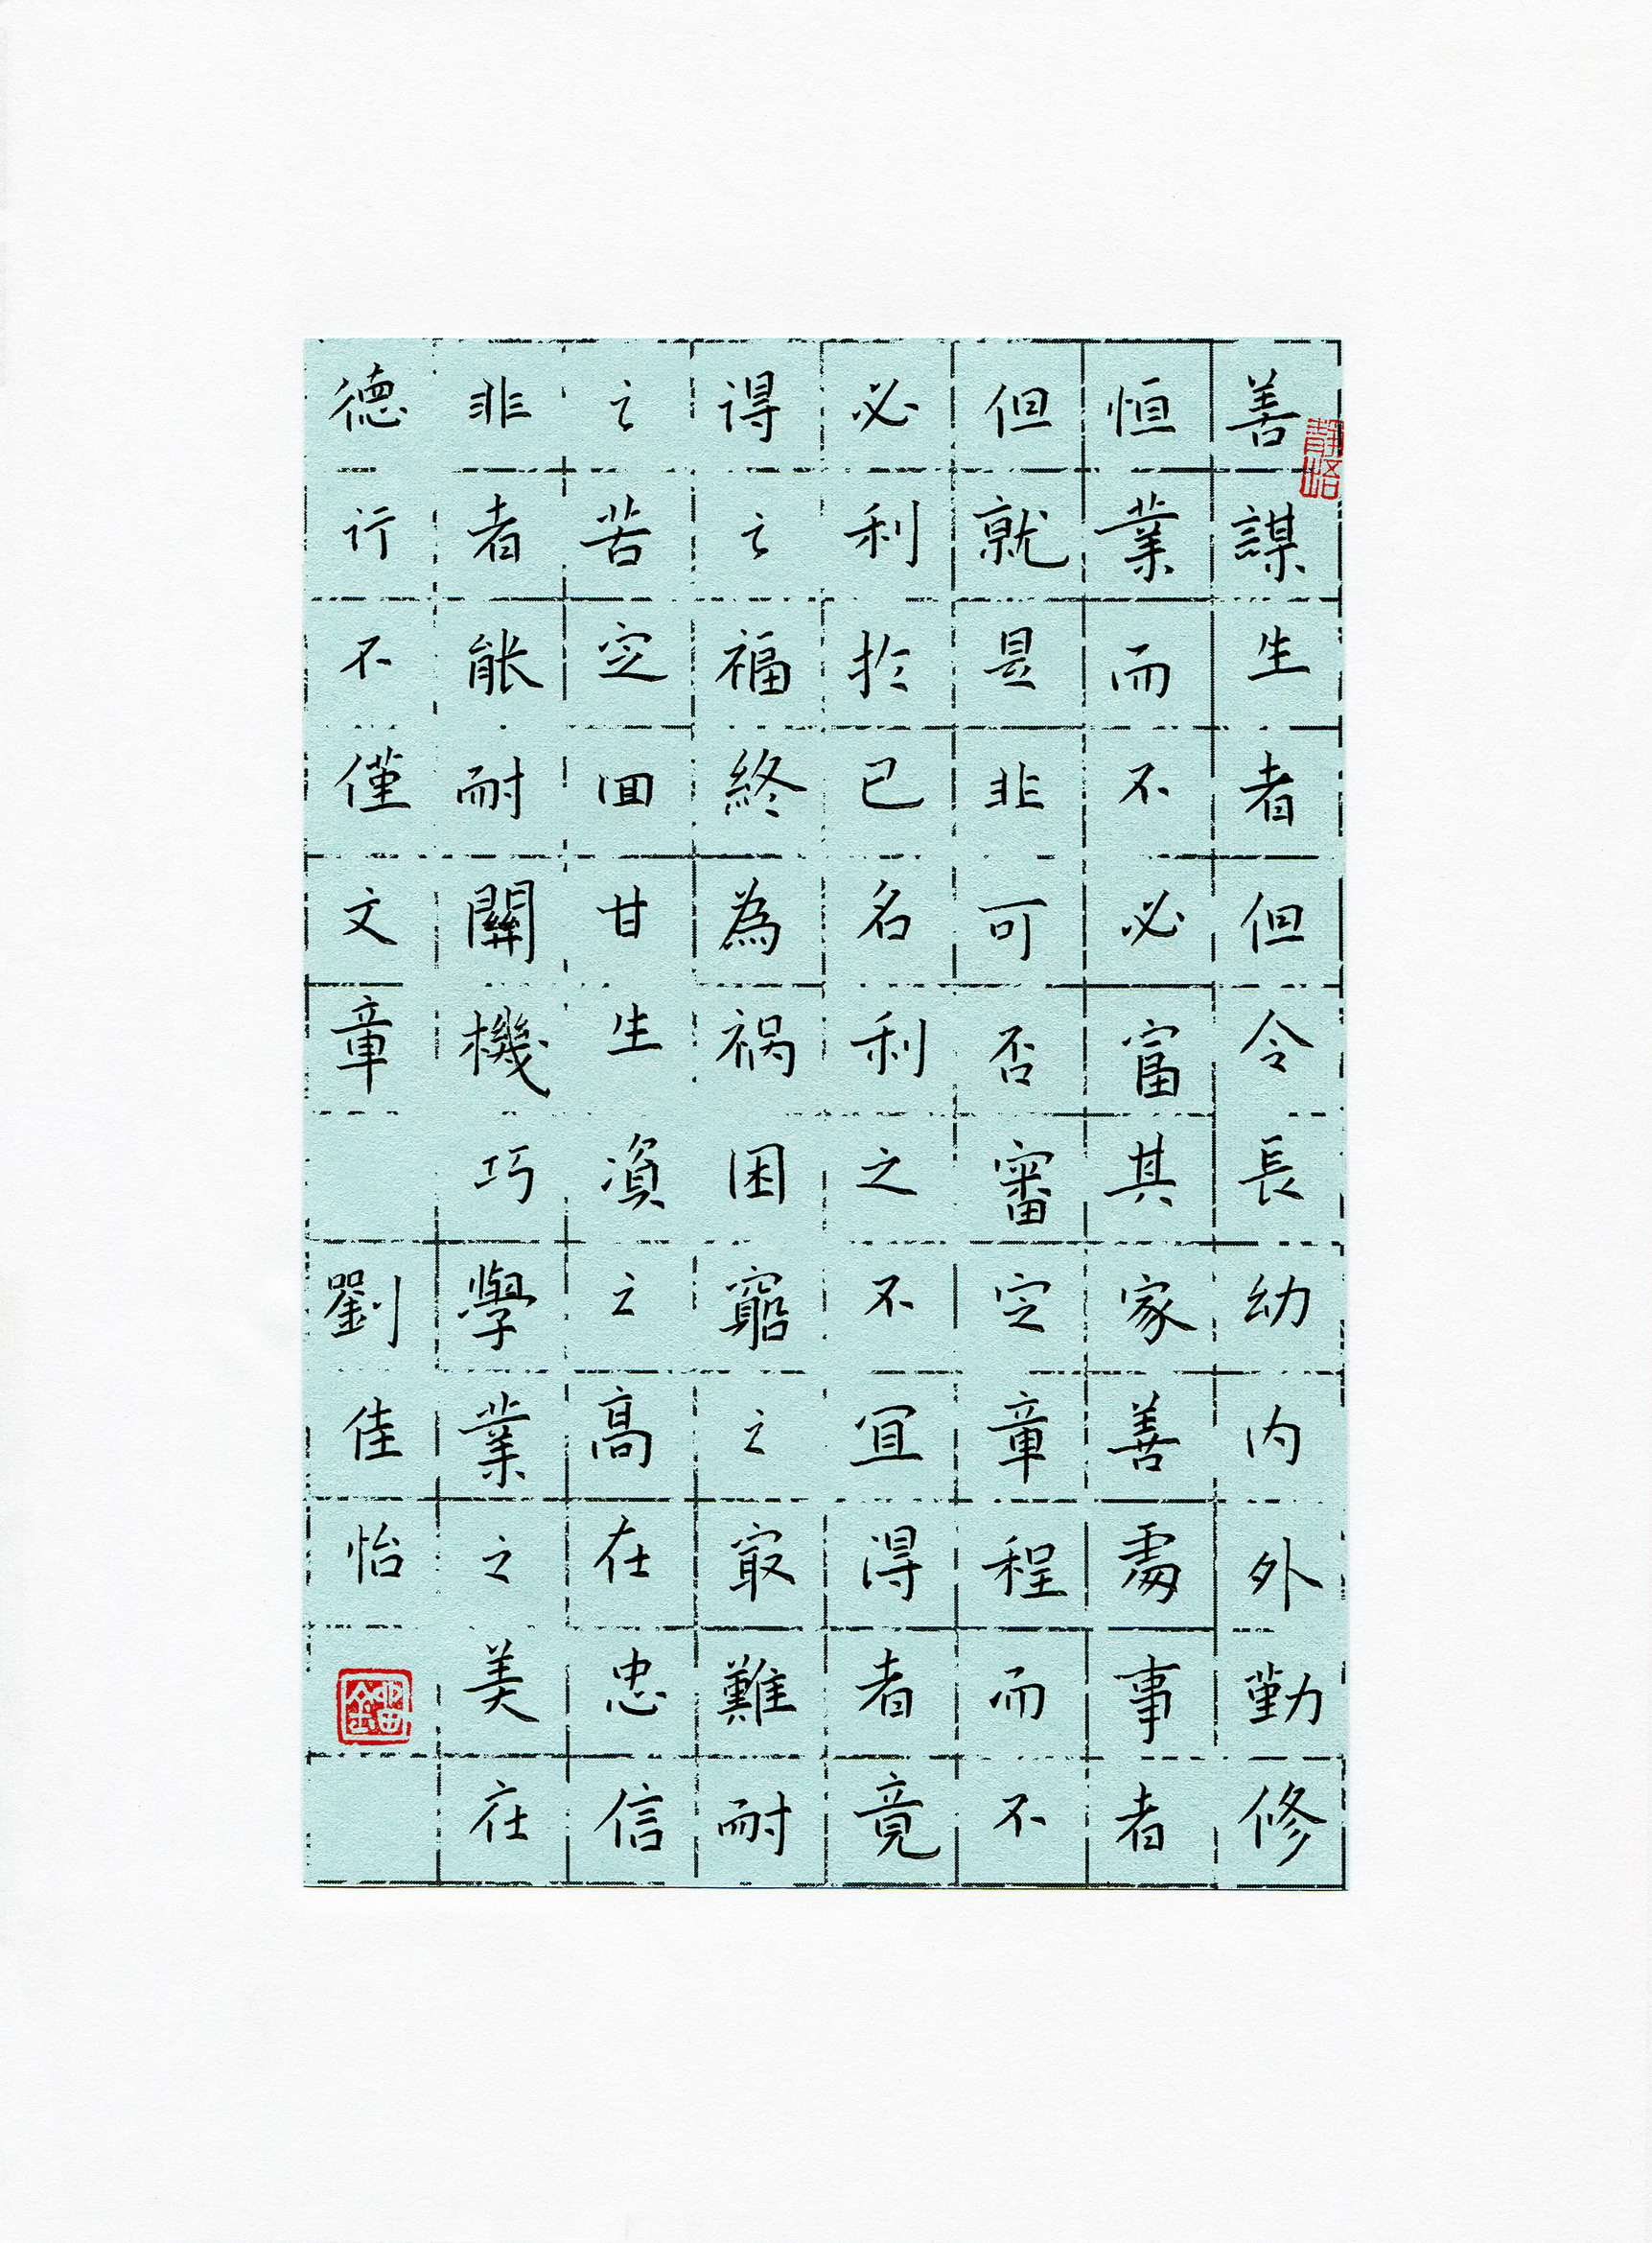 善謀生者但令長幼内外勤修
恒業而不必富其家善處事者
但就是非可否審定章程而不
必利於己名利之不宜得者竟
得之福終為祸困窮之最難耐
之苦定回甘生資之高在忠信
非者能耐關機巧學業之美在
德行不僅文章
劉佳怡